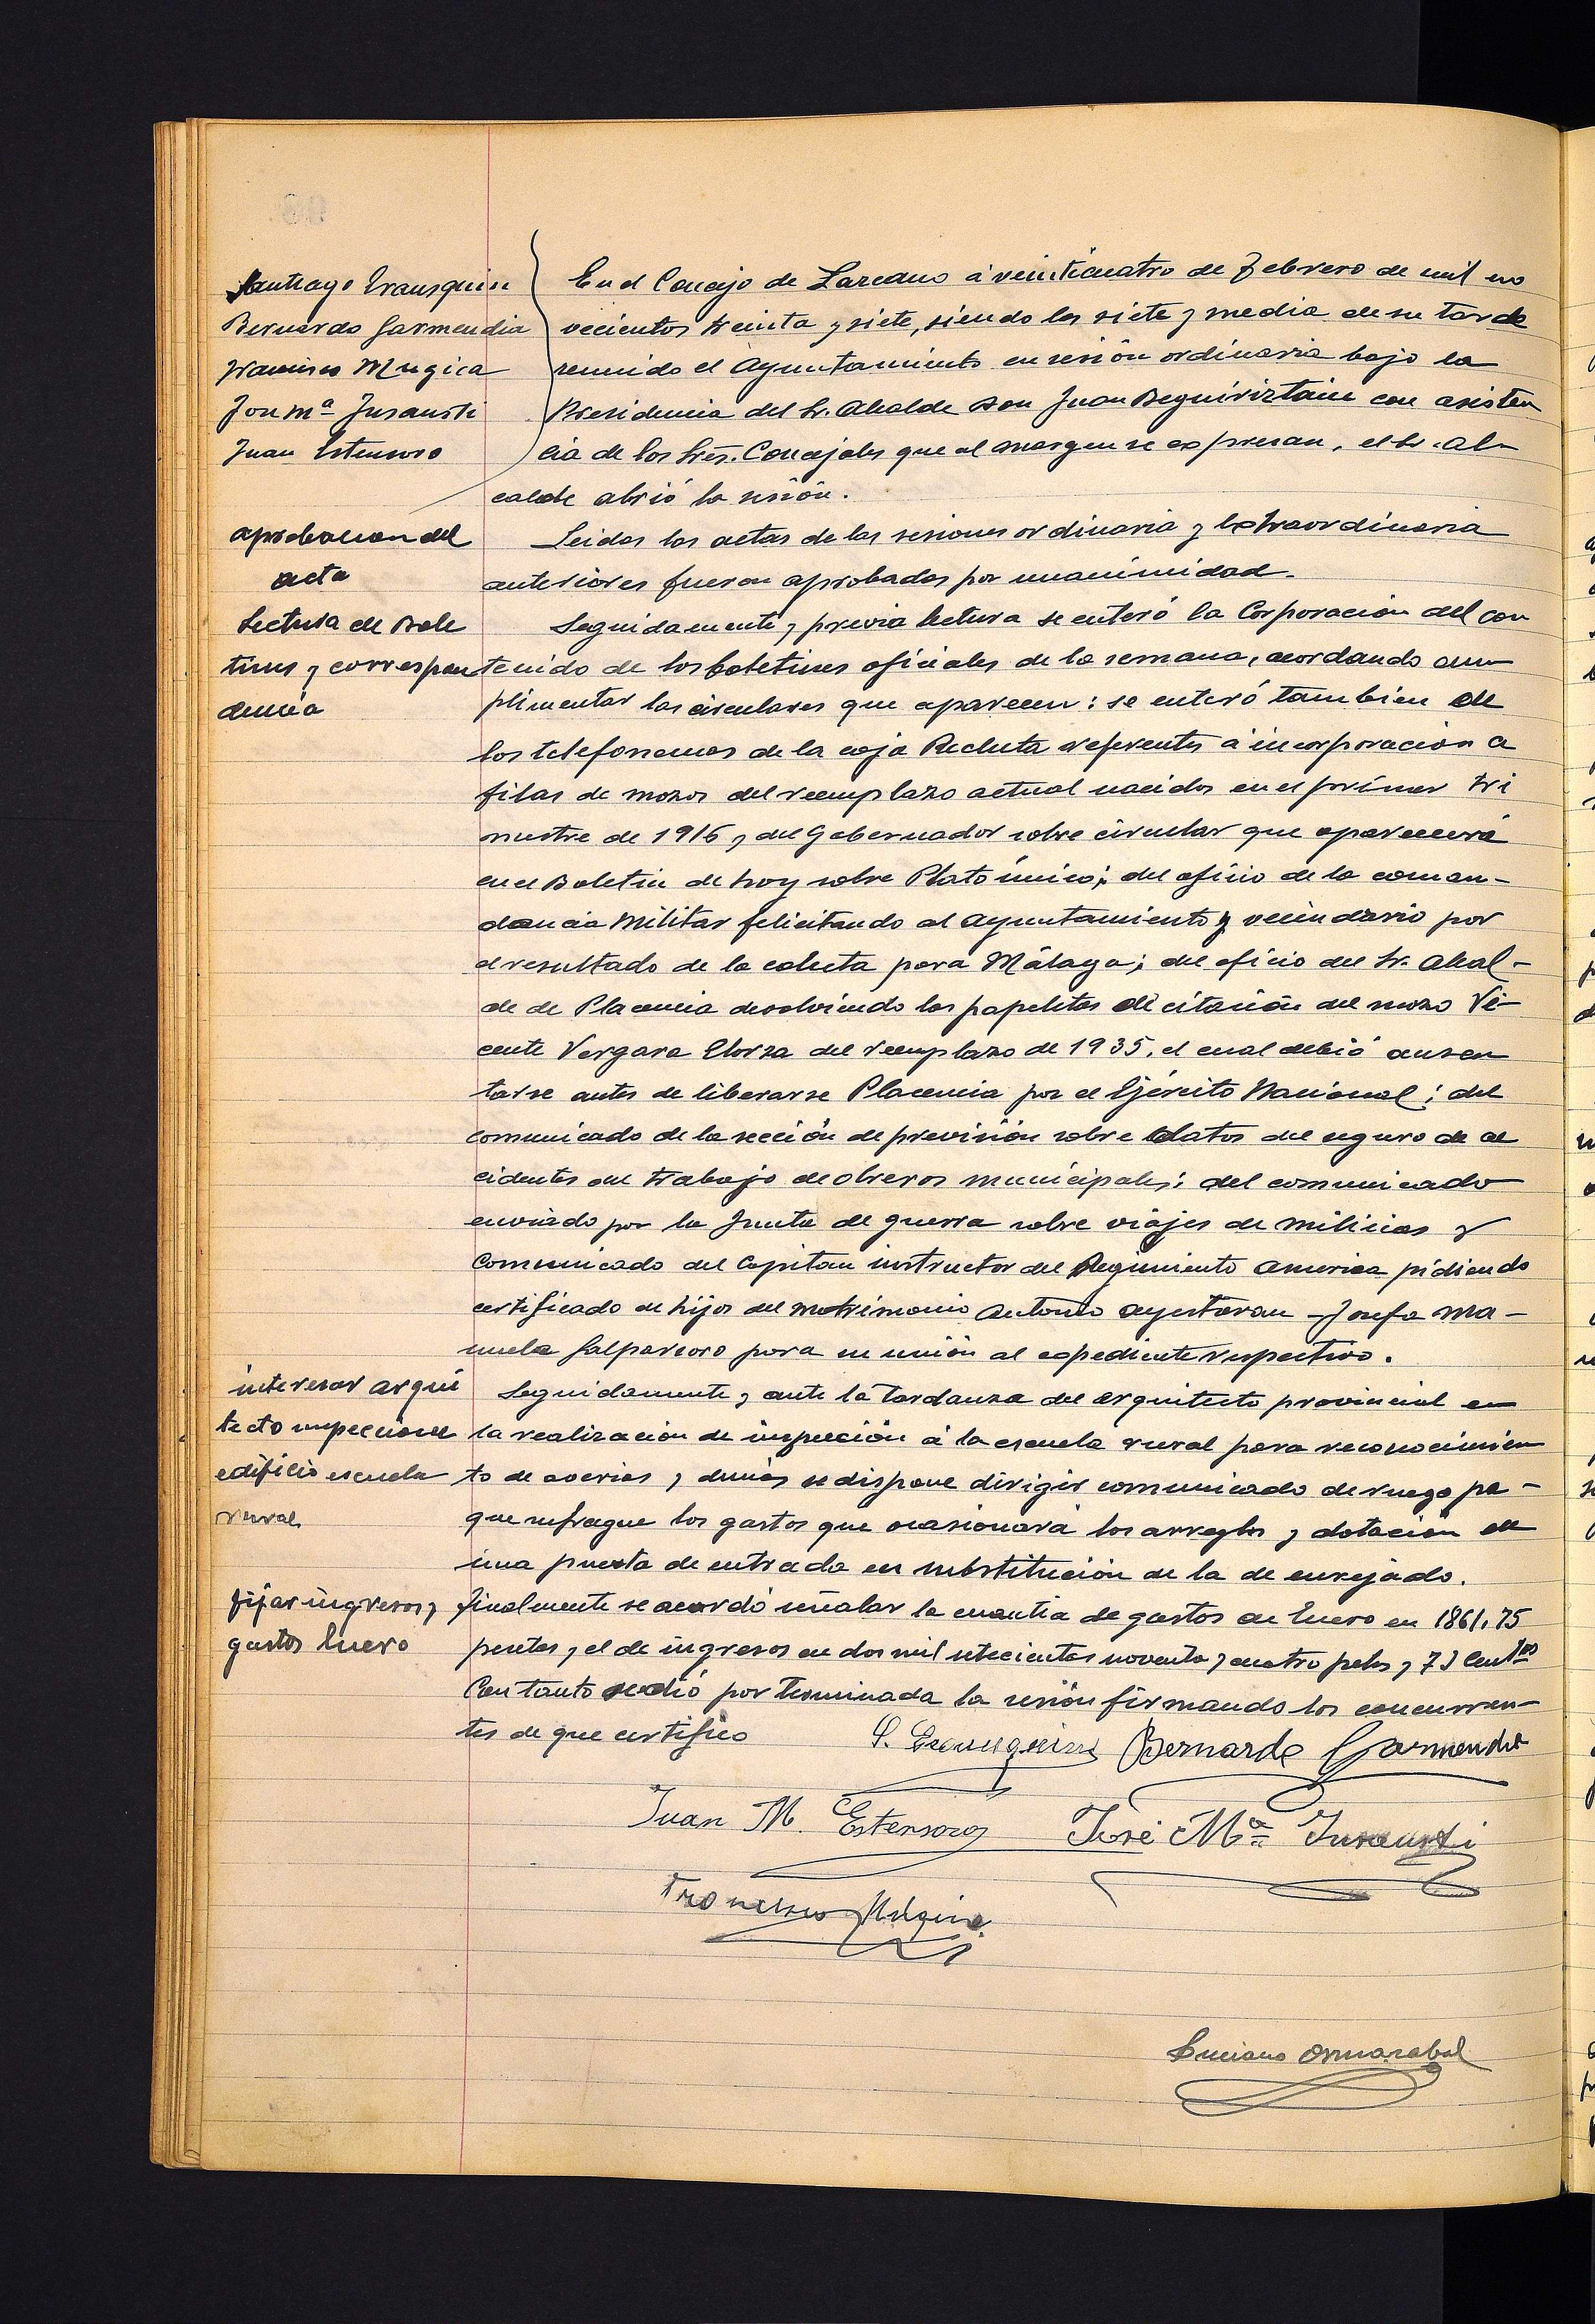 Santiago Irausquin
Bernardo Garmendia
Francisco Mugica
José Mª Insausti
Juan Estensoro
En el Concejo de Lazcano á veinticuatro de Febrero de mil no
vecientos treinta y siete, siendo las siete y media de su tarde
reunido el Ayuntamiento en sesión ordinaria bajo la
Presidencia del Sr. Alcalde Don Juan Beguiriztain con asisten
cia de los Sres. Concejales que al margen se expresan, el Sr. Al-
calde abrió la sesión.
aprobacion del
acta
Leidas las actas de las sesiones ordinaria y extraordinaria
anteriores fueron aprobadas por unanimidad.
Lectura de Bole
tines y correspon
dencia
Seguidamente y previa lectura se enteró la Corporación del con
tenido de los boletines oficiales de la semana, acordando cum
plimentar las circulares que aparecen: se enteró tambien de
los telefonemas de la caja Recluta referentes á incorporación a
filas de mozos del reemplazo actual nacidos en el primer tri
mestre de 1916 y del Gobernador sobre circular que aparecerá
en el Boletin de hoy sobre Plato único; del oficio de la coman-
dancia Militar felicitando al Ayuntamiento y vecindario por
el resultado de la colecta para Málaga; del oficio del Sr. Alcal-
de de Placencia devolviendo las papeletas de citación del mozo Vi-
cente Vergara Elorza del reemplazo de 1935, el cual debió ausen
tarse antes de liberarse Placencia por el Ejército Nacional; del
comunicado de la sección de previsión sobre datos del seguro de ac
cidentes del trabajo de obreros municipales; del comunicado
enviado por la Junta de guerra sobre viajes de milicias y
Comunicado del Capitan instructor del Regimiento America pidiendo
certificado de hijos del matrimonio Antonio Ayestaran - Josefa Ma-
nuela Galparsoro para su unión al expediente respectivo.
interesar arqui
tecto inspeccione
edificio escuela
rural
Seguidamente y ante la tardanza del arquitecto provincial en
la realización de inspección á la escuela rural para reconocimien
to de averias y demás se dispone dirigir comunicado de ruego pa-
que sufrague los gastos que ocasionará los arreglos y dotación de
una puerta de entrada en substitución de la de enrejado.
fijar ingresos y
gastos Enero
Finalmente se acordó señalar la cuantia de gastos de Enero en 1861,75
pesetas y el de ingresos en dos mil setecientas noventa y cuatro petas y 73 centos
Con tanto se dió por terminada la sesión firmando los concurren-
tes de que certifico
S. Irausquin Bernardo Garmendia
Juan M. Estensoro José Mª Insausti
Francisco Mugica
Luciano Ormazabal